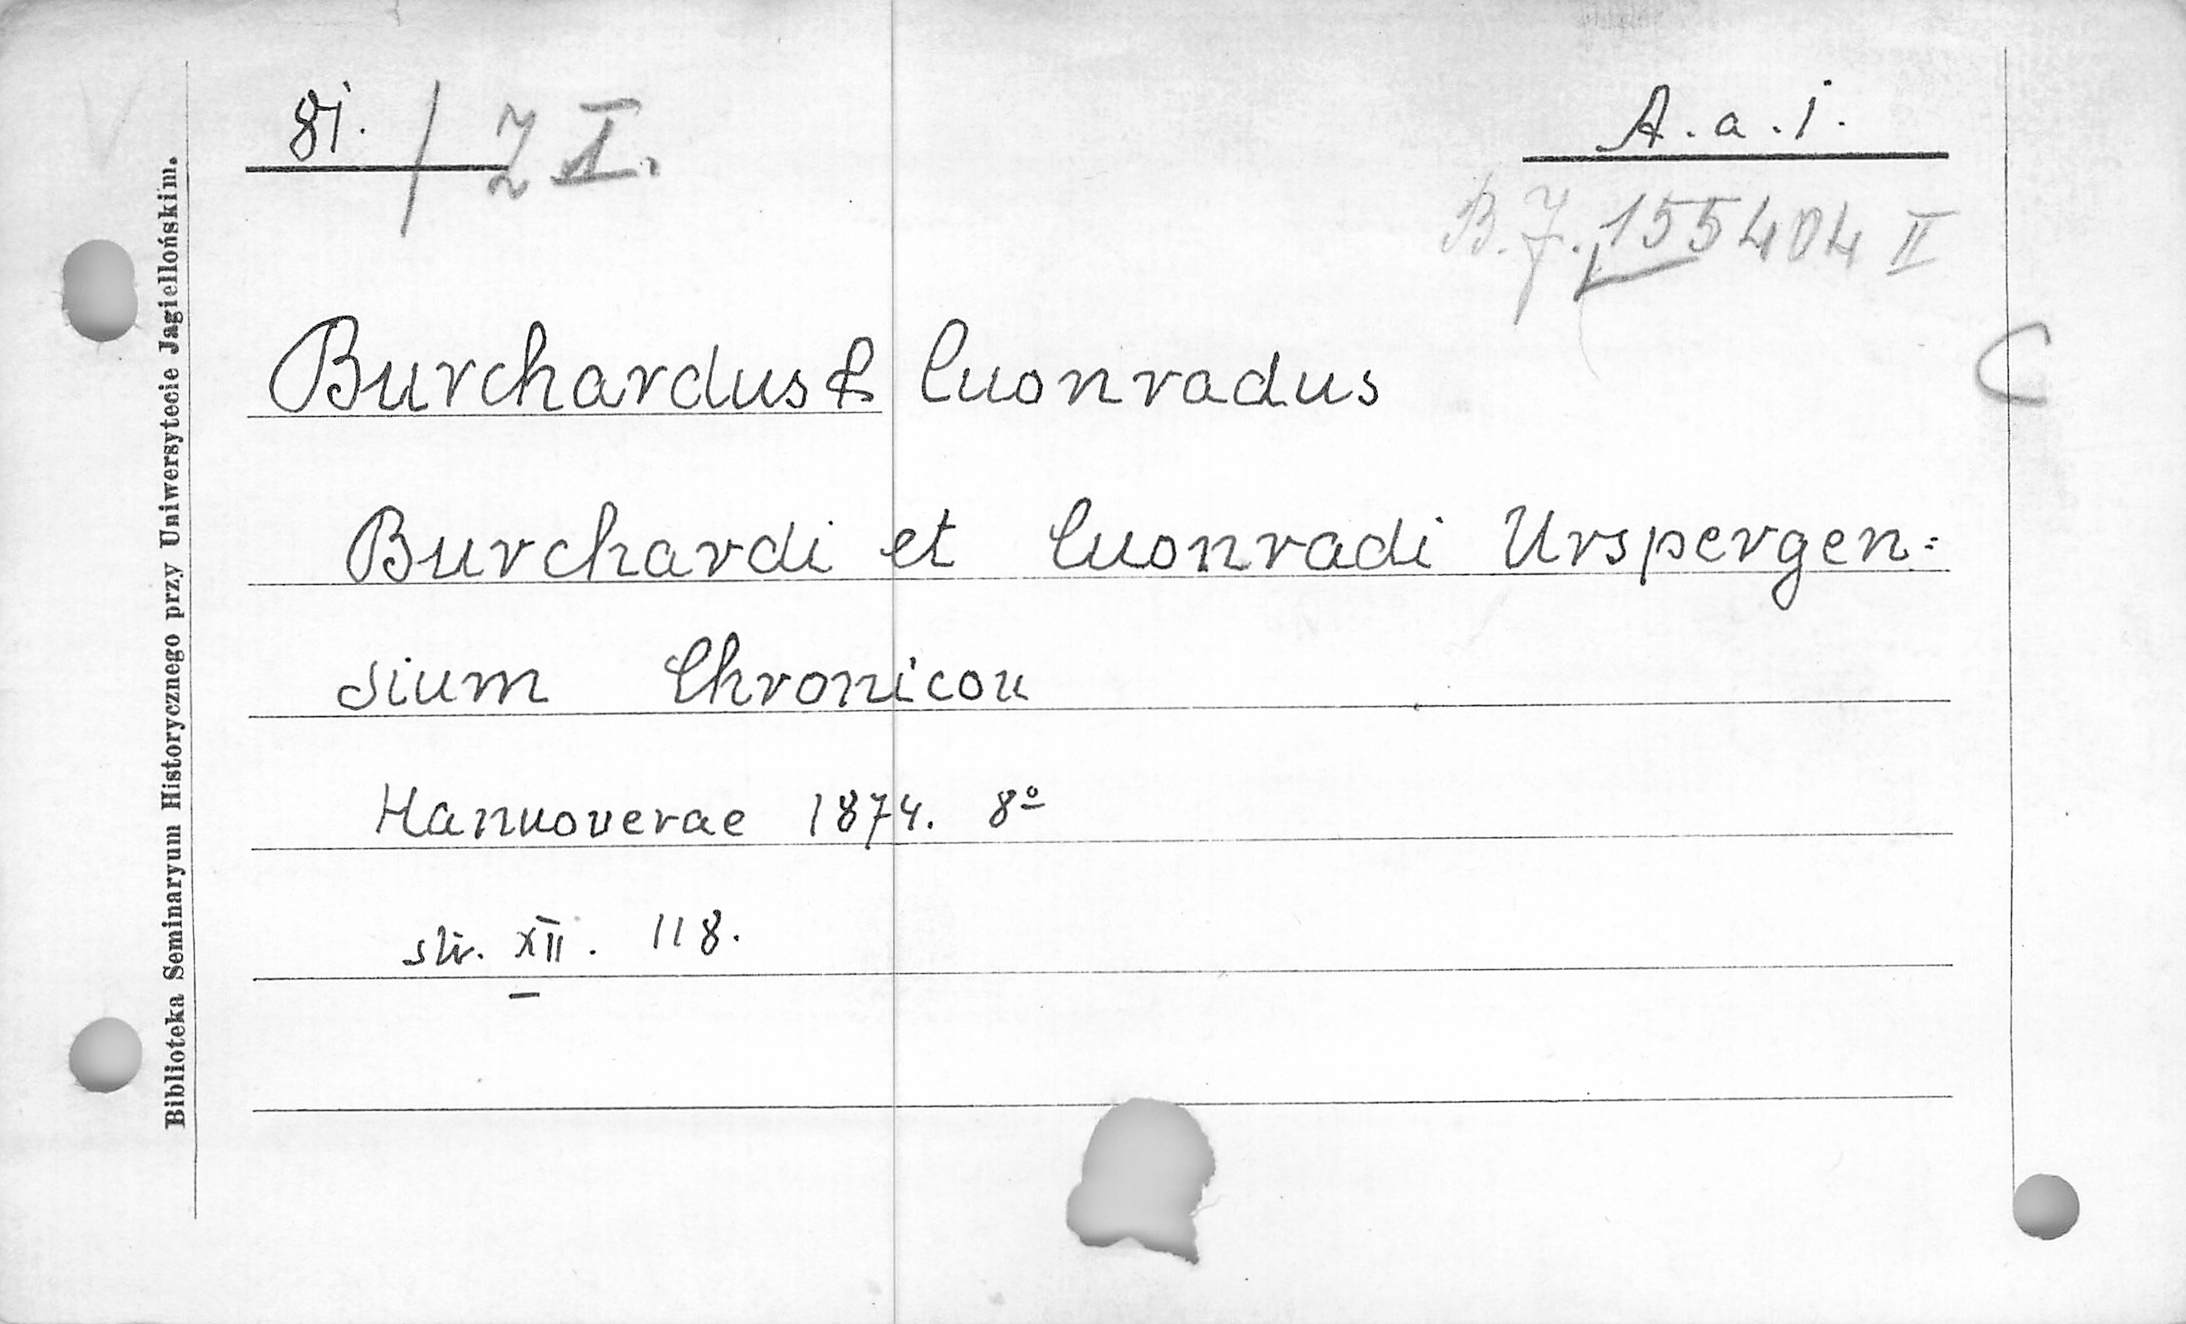 81. / Z I.
A. a. 1.
B. J. 155404 II
Burchardus & Cuonradus
C
Burchardi et Cuonradi Urspergen=
sium Chronicon
Hannoverae 1874. 8º
str. XII. 118.
Biblioteka Seminaryum Historycznego przy Uniwersytecie Jagiellońskim.